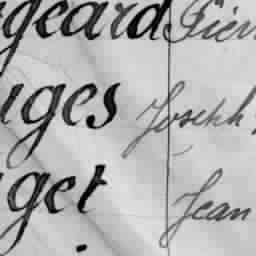 geard Pier
uges Joseph
get Jean